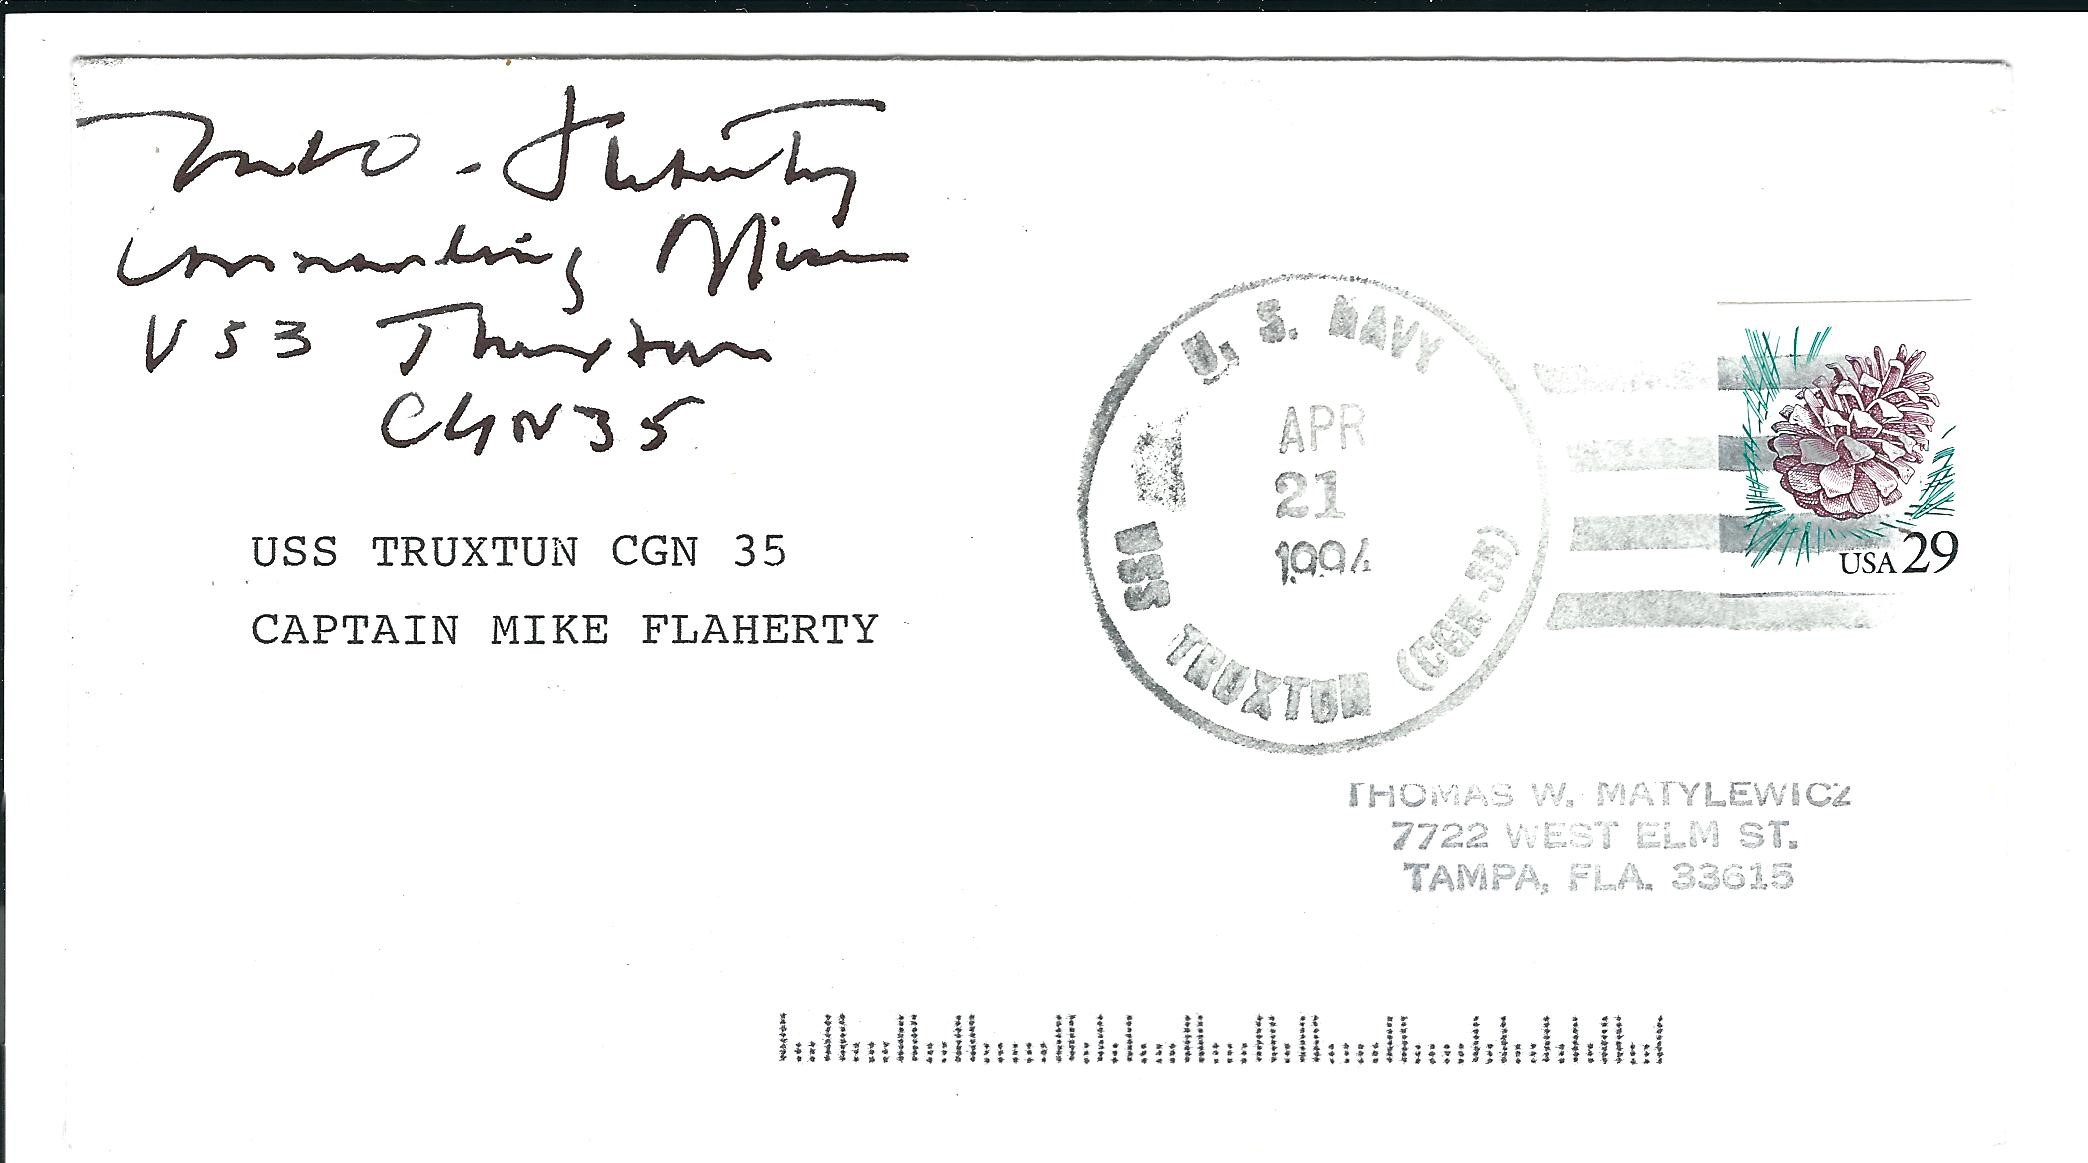 Commanding Officer
USS Truxtun
CGN 35
USS TRUXTUN CGN 35
CAPTAIN MIKE FLAHERTY
U. S. NAVY
APR
21
1994
USS TRUXTUN (CGN-35)
USA 29
THOMAS W. MATYLEWICZ
7722 WEST ELM ST.
TAMPA, FLA. 33615